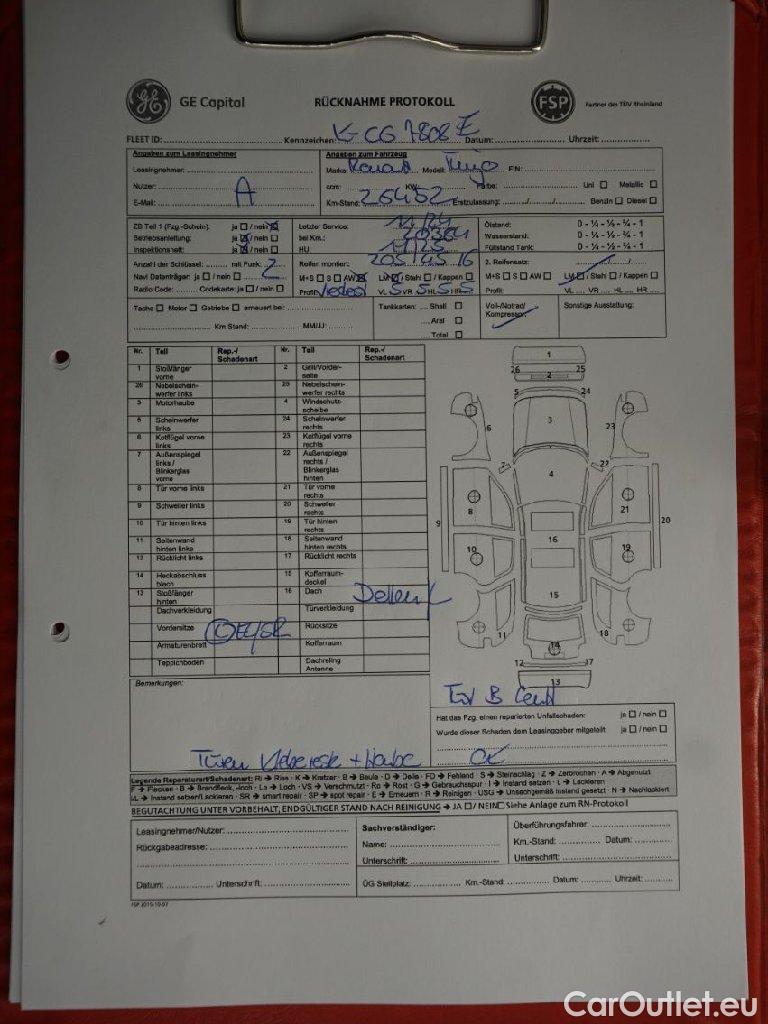 GE Capital
RÜCKNAHME PROTOKOLL
FSP
Partner des TÜV Rheinland
FLEET ID: Kennzeichen: K-CG 7808 E Datum: Uhrzeit:
Angaben zum Leasingnehmer
Angaben zum Fahrzeug
Leasingnehmer:
Marke: Renault Modell: FIN:
Nutzer: A
ccm: KW: Farbe: Uni ☐ Metallic ☐
E-Mail:
Km-Stand: 26452 Erstzulassung: Benzin ☐ Diesel ☐
ZB Teil 1 (Fzg.-Schein): ja ☐ / nein ☒
Betriebsanleitung: ja ☒ / nein ☐
Inspektionsheft: ja ☒ / nein ☐
Letzter Service: 11/24
bei Km.: 20364
HU
Ölstand: 0 - ¼ - ½ - ¾ - 1
Wasserstand: 0 - ¼ - ½ - ¾ - 1
Füllstand Tank: 0 - ¼ - ½ - ¾ - 1
Anzahl der Schlüssel: mit Funk: 2
Navi Datenträger: ja ☐ / nein ☐
Radio Code: Codekarte: ja ☐ / nein ☐
Reifen montiert: 205/45 16
M+S ☐ S ☐ AW ☒ LM ☑ / Stahl ☐ / Kappen ☐
Profil: VL 5 VR 5 HL 5 HR 5
2. Reifensatz:
M+S ☐ S ☐ AW ☐ LM ☐ / Stahl ☐ / Kappen ☐
Profil: VL VR HL HR
Tacho ☐ Motor ☐ Getriebe ☐ erneuert bei:
Km Stand: MM/JJ:
Tankkarten: Shell ☐
Aral ☐
Total ☐
Voll-/Notrad/
Kompressor:
Sonstige Ausstattung:
Nr. Teil Rep.-/ Schadenart Nr. Teil Rep.-/ Schadenart
1 Stoßfänger vorne 2 Grill/Vorderseite
26 Nebelscheinwerfer links 25 Nebelscheinwerfer rechts
3 Motorhaube 4 Windschutzscheibe
5 Scheinwerfer links 24 Scheinwerfer rechts
6 Kotflügel vorne links 23 Kotflügel vorne rechts
7 Außenspiegel links / Blinkerglas vorne 22 Außenspiegel rechts / Blinkerglas hinten
8 Tür vorne links 21 Tür vorne rechts
9 Schweller links 20 Schweller rechts
10 Tür hinten links 19 Tür hinten rechts
11 Seitenwand hinten links 18 Seitenwand hinten rechts
12 Rücklicht links 17 Rücklicht rechts
14 Heckabschlussblech 15 Kofferraumdeckel
13 Stoßfänger hinten 16 Dach Dellen
Dachverkleidung Türverkleidung
Vordersitze Rücksitze
Armaturenbrett Kofferraum
Teppichboden Dachreling Antenne
1
26 25
2
5 24
3
6 23
7 22
4
8 21
9 20
16
10 19
15
11 18
14
12 17
13
Bemerkungen:
Hat das Fzg. einen reparierten Unfallschaden: ja ☐ / nein ☐
Wurde dieser Schaden dem Leasinggeber mitgeteilt ja ☐ / nein ☐
OK
Türen Klebereste + Haube
Legende Reparaturart/Schadenart: Ri → Riss · K → Kratzer · B → Beule · D → Delle · FD → Fehlend · S → Steinschlag · Z → Zerbrochen · A → Abgenutzt
F → Flecken · B → Brandfleck, -loch · Lo → Loch · VS → Verschmutzt · Ro → Rost · G → Gebrauchsspur · I → Instand setzen · L → Lackieren
IL → Instand setzen/Lackieren · SR → smart repair · SP → spot repair · E → Erneuern · R → Reinigen · USG → Unsachgemäß instand gesetzt · N → Nachlackiert
BEGUTACHTUNG UNTER VORBEHALT, ENDGÜLTIGER STAND NACH REINIGUNG → JA ☐ / NEIN ☐ Siehe Anlage zum RN-Protokoll
Leasingnehmer/Nutzer: Sachverständiger: Überführungsfahrer:
Rückgabeadresse: Name: Km.-Stand: Datum:
Unterschrift: Unterschrift:
Datum: Unterschrift: ÜG Stellplatz: Km.-Stand: Datum: Uhrzeit:
CarOutlet.eu